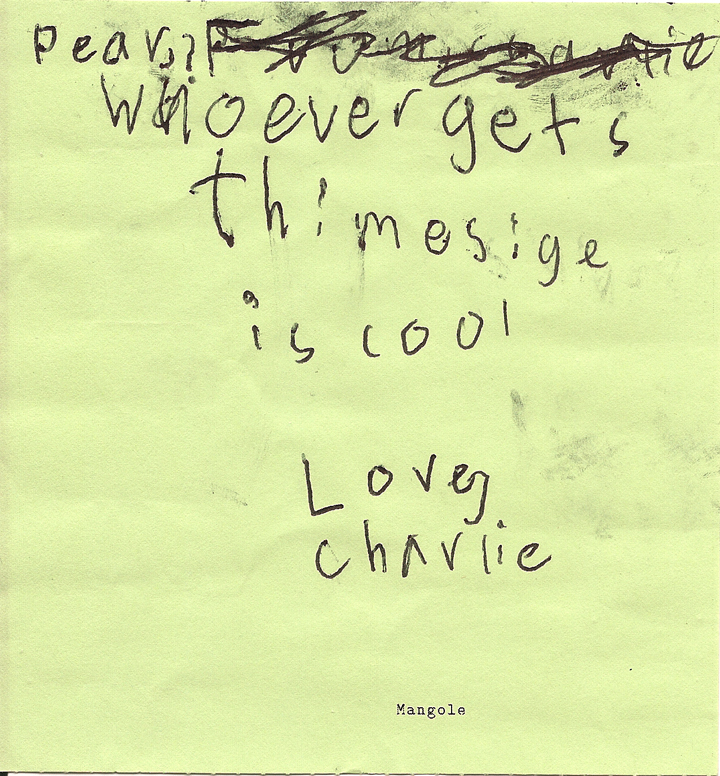 Dears?
Whoever gets
thimesige
is cool
Love,
charlie
Mangole